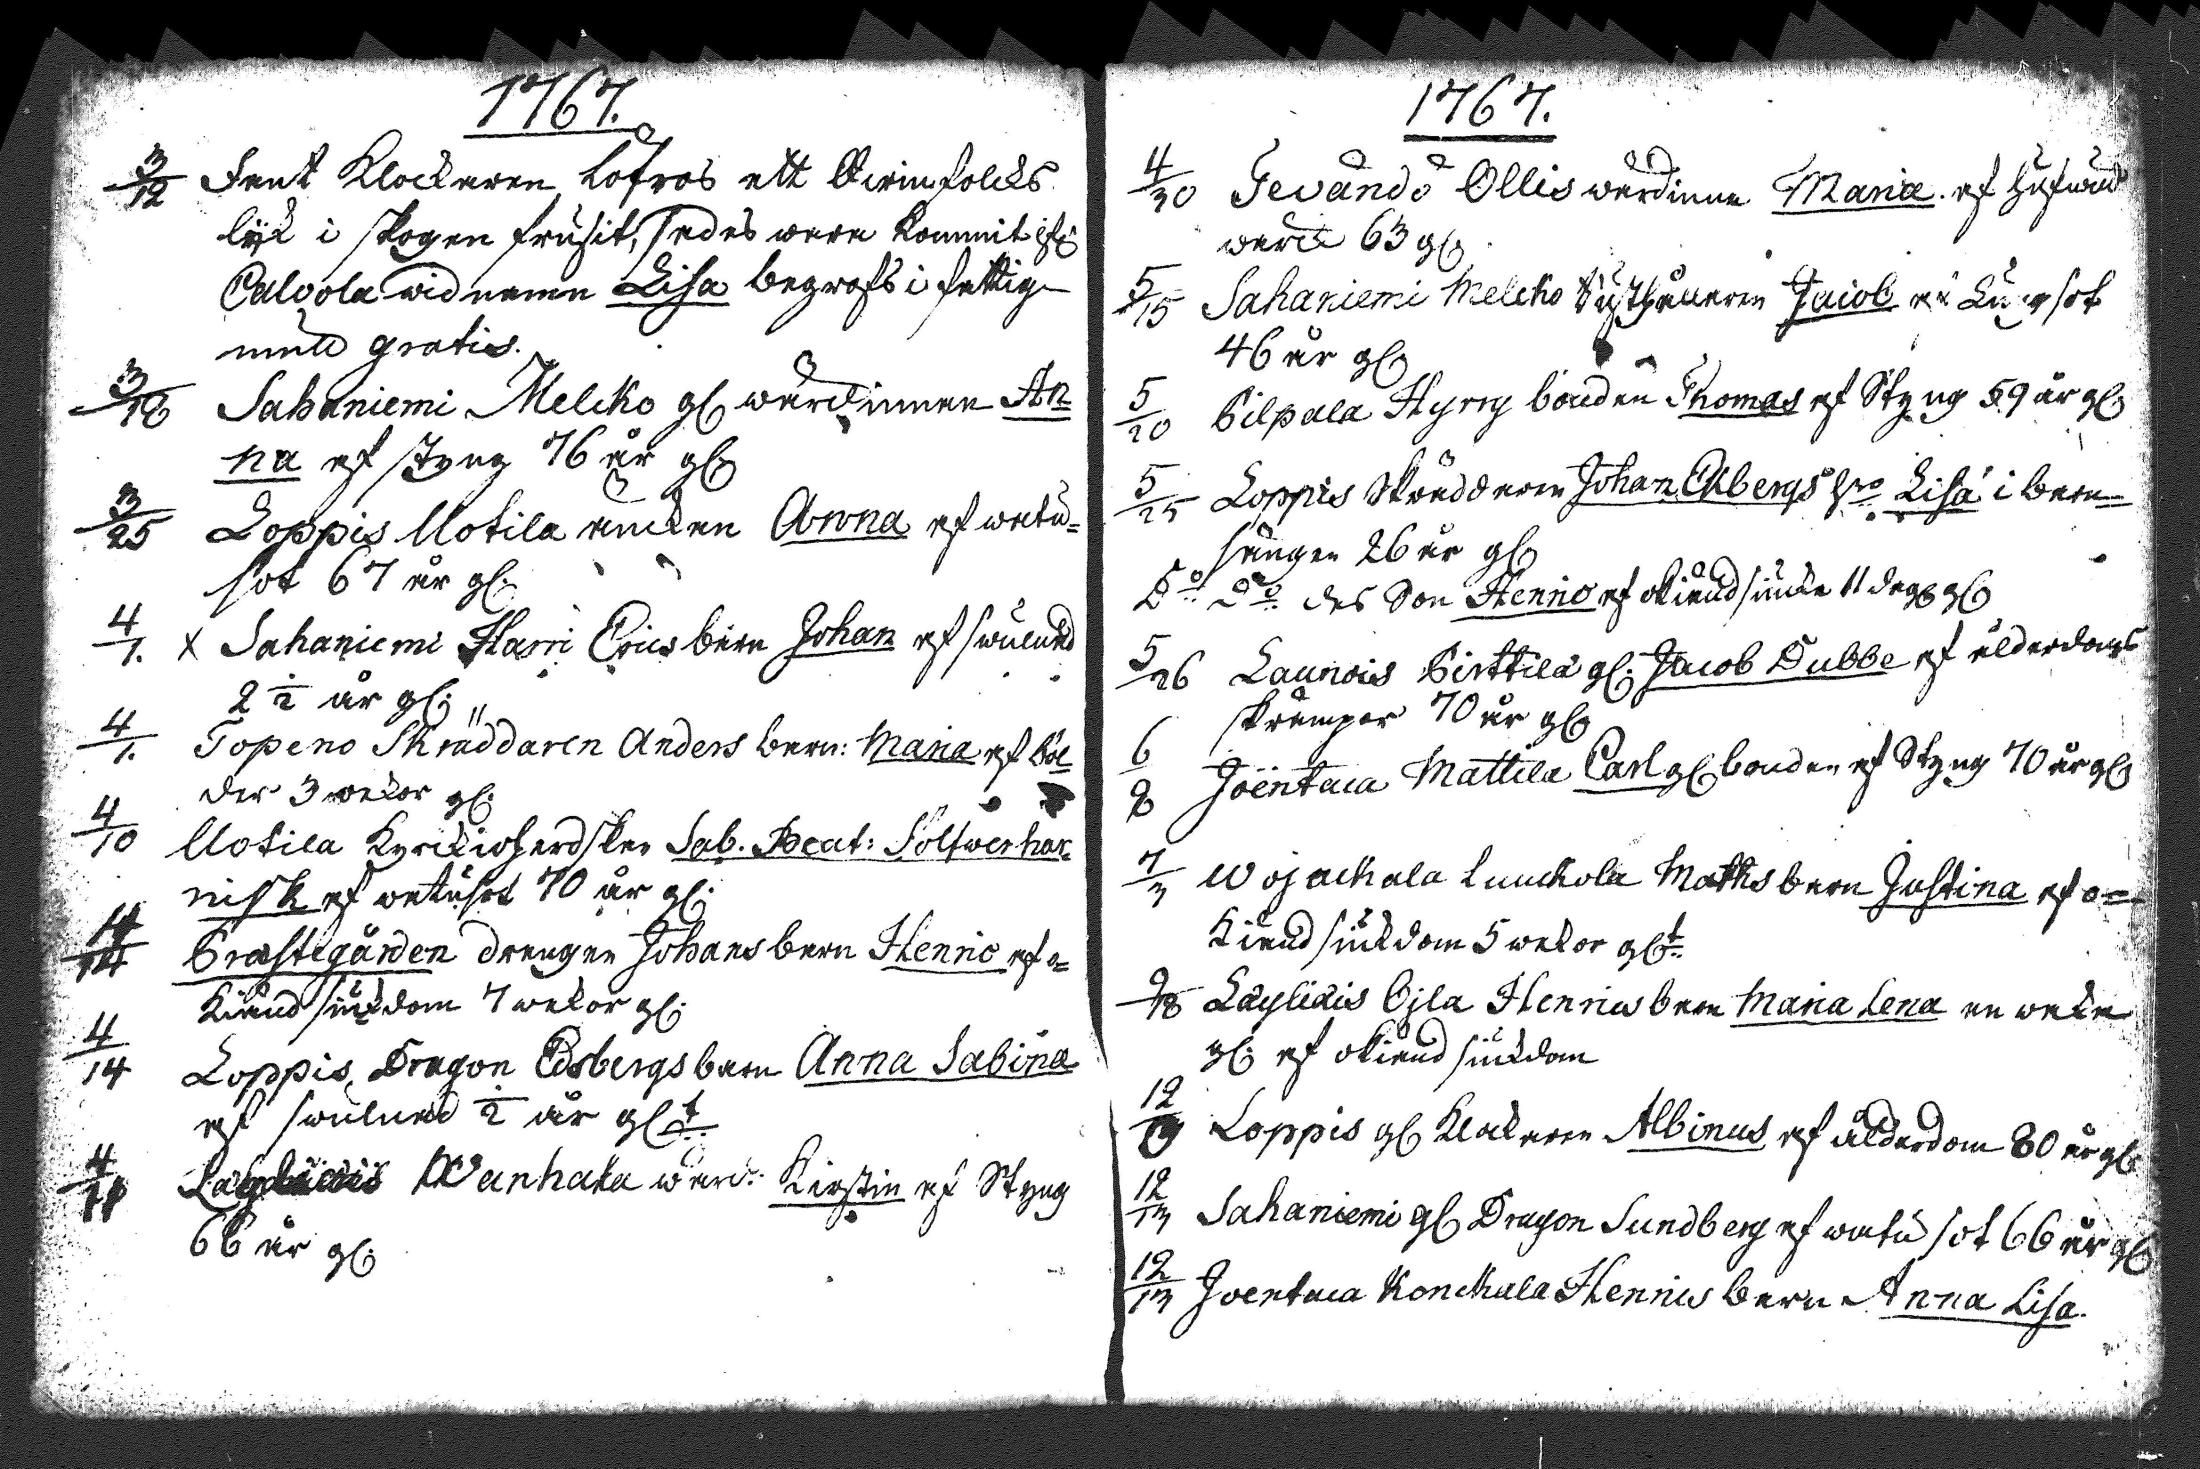 1767.
3/12 Fant Klockaren Löfros ett Qwinfolcks
lijk i skogen frusit, sades wara kommit ifr.
Calvola wid namn Lisa begrofs i fattig-
mull gratis.
3/18 Sahaniemi Melcko gl. wärdinnan An
na af styng 76 år gl.
3/25 Loppis Uotila änckan Anna af watu=
sot 67 år gl.
4/1. x Sahaniemi Harri Erics barn Johan af swulnad
2 1/2 år gl.
4/1. Topeno Skräddaren Anders barn: Maria af böl
der 3 wekor gl.
4/10 Uotila Kyrckioherdskan Sab. Beat:
nisk af watusot 70 år gl.
4/14 Præstegården drengen Johans barn Henric af o=
kiend siukdom 7 wekor gl.
4/14 Loppis Dragon Edbergs barn Anna Sabina
af swulnad 1/2 år glt
4/ Wanhala wärd: Kirstin af Styng
66 år gl.
1767.
4/30 Tevändö Ollis wärdinna Maria af hufwud
werck 63 gl.
5/15 Sahaniemi Melcko Rusthållaren Jacob af Lungsot
46 år gl.
5/20 Pilpala Hyrry bonden Thomas af Styng 59 år gl.
5/25 Loppis Skräddaren Johan Ekbergs hro Lisa i barn-
sängen 26 år gl.
Do Do des Son Henric af okiend siuka 11 dagar gl.
5/26 Launois Pirttilä gl. Jacob Dubbe af ålderdoms
skrämpor 70 år gl.
6/8 Joentaca Mattila Carl gl. bonden af Styng 70 år gl.
7/3 Wojackala Luuckola Matths barn Justina af o=
kiend siukdom 5 wekor glt
9/18 Läyliäis Ojla Henrics barn Maria Lena en weka
gl. af okiend siukdom
12/ Loppis gl. Klockaren Albinus af ålderdom 80 år gl.
12/13 Sahaniemi gl. Dragon Sundberg af watusot 66 år gl.
12/13 Joentaca Konckala Henrics barn Anna Lisa.